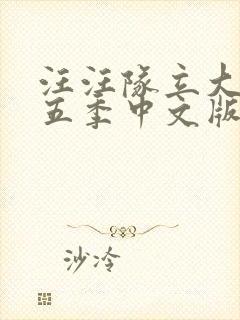 汪汪队立大
五季中文版
沙冷